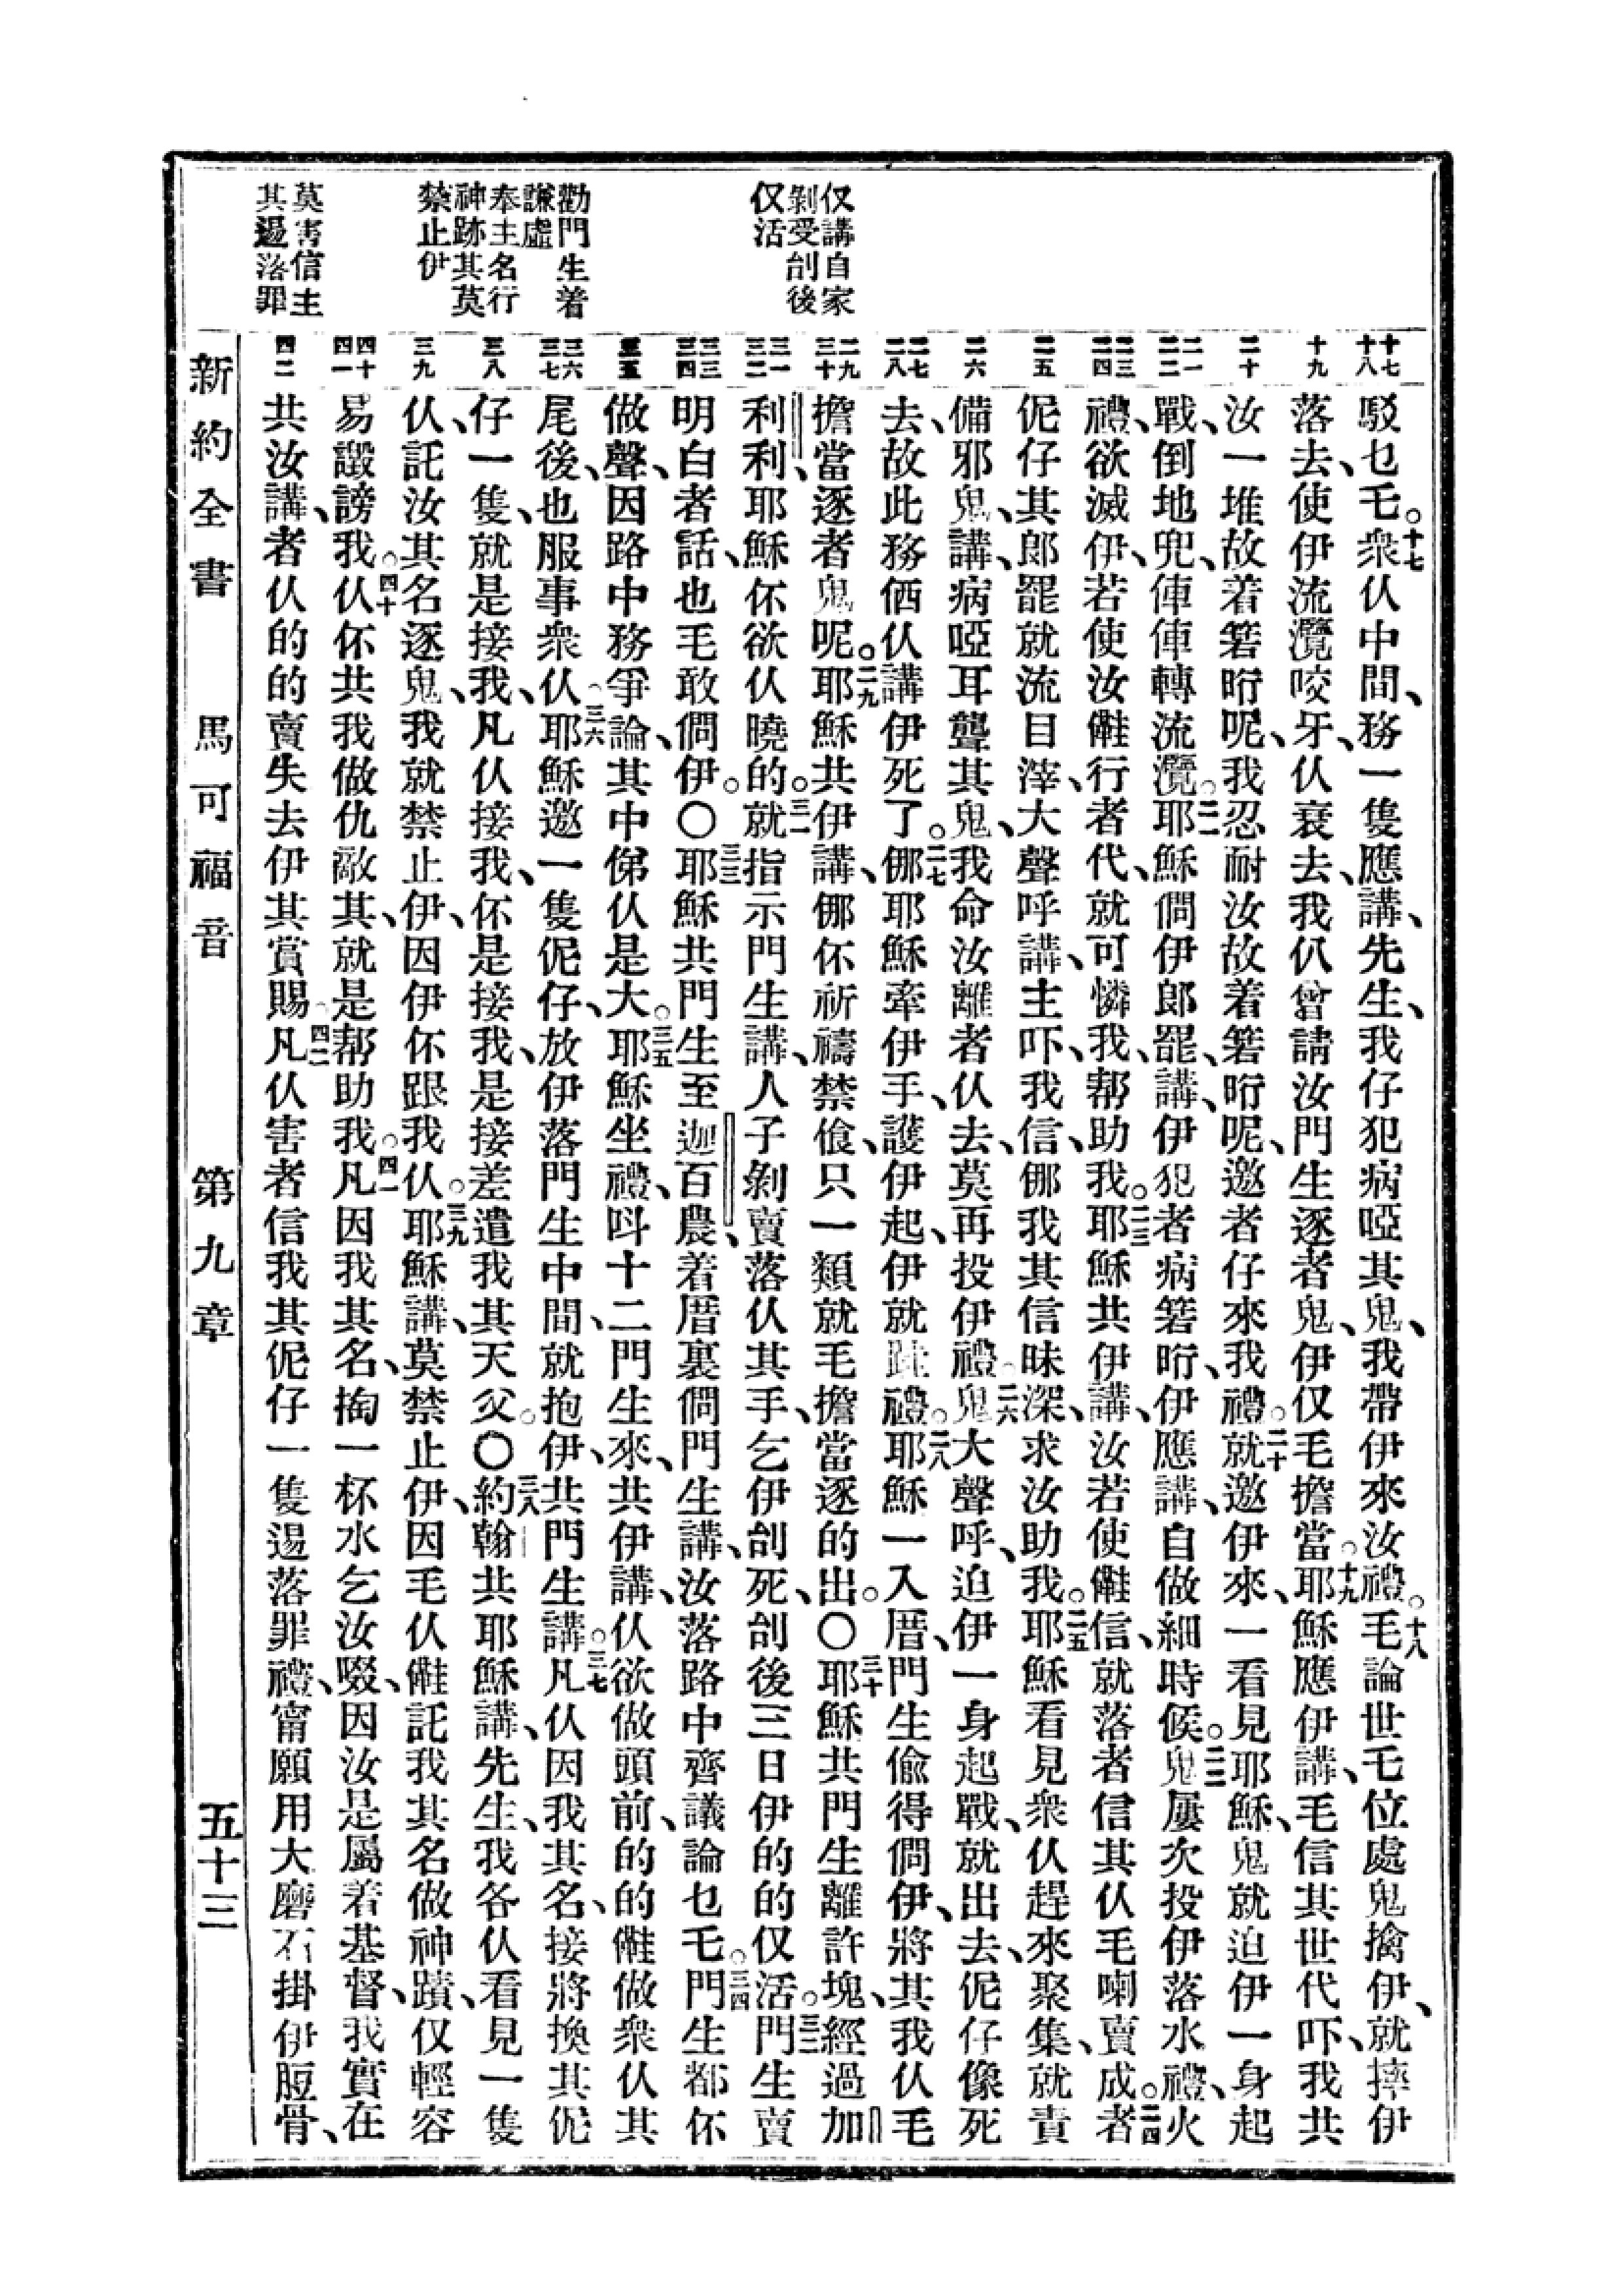 仅講自家
剝受刣後
仅活
勸門生着
謙虛
奉主名行
神跡其莫
禁止伊
莫害信主
其逿落罪
十七
十八
十九
二十
二一
二二
二三
二四
二五
二六
二七
二八
二九
三十
三一
三二
三三
三四
三五
三六
三七
三八
三九
四十
四一
四二
駁乜毛。十七衆仫中間、務一隻應講、先生、我仔犯病啞其鬼、我帶伊來汝禮。十八毛論世毛位處鬼擒伊、就摔伊
落去、使伊流灠咬牙、仫衰去、我仈曾請汝門生逐者鬼、伊仅毛擔當。十九耶穌應伊講、毛信其世代吓、我共
汝一堆故着箬晘呢、我忍耐汝故着箬晘呢、邀者仔來我禮。二十就邀伊來、一看見耶穌、鬼就迫伊一身起
戰、倒地兜、俥俥轉流灠。二一耶穌僴伊郎罷、講、伊犯者病箬晘、伊應講、自做細時候。二二鬼屢次投伊落水禮、火
禮、欲滅伊、若使汝㒕行者代、就可憐我、幫助我。二三耶穌共伊講、汝若使㒕信、就落者信其仫毛喇賣成。二四者
伲仔其郎罷就流目滓、大聲呼講、主吓、我信、㑚我其信昧深、求汝助我。二五耶穌看見衆仫趕來聚集、就責
備邪鬼、講、病啞耳聾其鬼、我命汝離者仫去、莫再投伊禮。二六鬼大聲呼、迫伊一身起戰、就出去、伲仔像死
去、故此務価仫講伊死了。二七㑚耶穌牽伊手、護伊起、伊就跮禮。二八耶穌一入厝、門生偸得僴伊、將其我仫毛
擔當逐者鬼呢。二九耶穌共伊講、㑚伓祈禱禁飡、只一類就毛擔當逐的出。〇三十耶穌共門生離許塊、經過加
利利、耶穌伓欲仫曉的。三一就指示門生講、人子剝賣落仫其手、乞伊刣死、刣後三日伊的的仅活。三二門生賣
明白者話、也毛敢僴伊。〇三三耶穌共門生至迦百農、着厝裏僴門生講、汝落路中齊議論乜毛。三四門生都伓
做聲、因路中務爭論、其中俤仫是大。三五耶穌坐禮、呌十二門生來、共伊講、仫欲做頭前、的的㒕做衆仫其
尾後、也服事衆仫。三六耶穌邀一隻伲仔、放伊落門生中間、就抱伊、共門生講。三七凡仫因我其名、接將換其伲
仔一隻、就是接我、凡仫接我、伓是接我、是接差遣我其天父。〇三八約翰共耶穌講、先生、我各仫看見一隻
仫、託汝其名逐鬼、我就禁止伊、因伊伓跟我仫。三九耶穌講、莫禁止伊、因毛仫㒕託我其名做神蹟、仅輕容
易譭謗我。四十仫伓共我做仇敵其、就是幫助我。四一凡因我其名、掏一杯水乞汝啜、因汝是屬着基督、我實在
共汝講、者仫的的賣失去伊其賞賜。四二凡仫害者信我其伲仔一隻逿落罪禮、甯願用大磨石掛伊脰骨、
新約全書 馬可福音 第九章 五十三